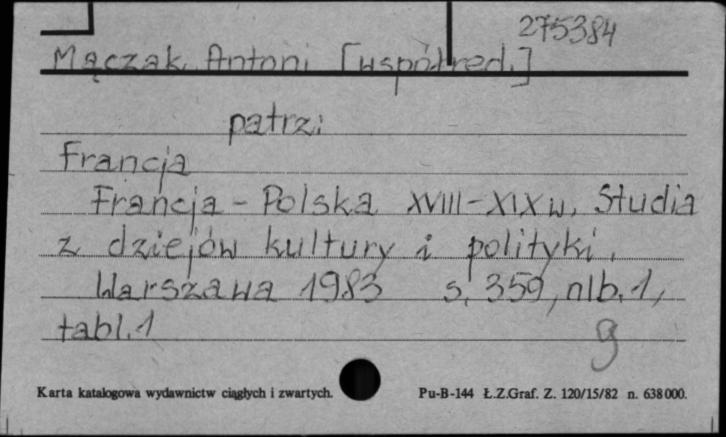 275384
Mączak, Antoni [współred.]
patrz:
Francja
Francja - Polska XVIII-XIX w. Studia
z dziejów kultury i polityki.
Warszawa 1983 s. 359, nlb. 1,
tabl. 1
g
Karta katalogowa wydawnictw ciągłych i zwartych. Pu-B-144 Ł.Z.Graf. Z. 120/15/82 n. 638 000.